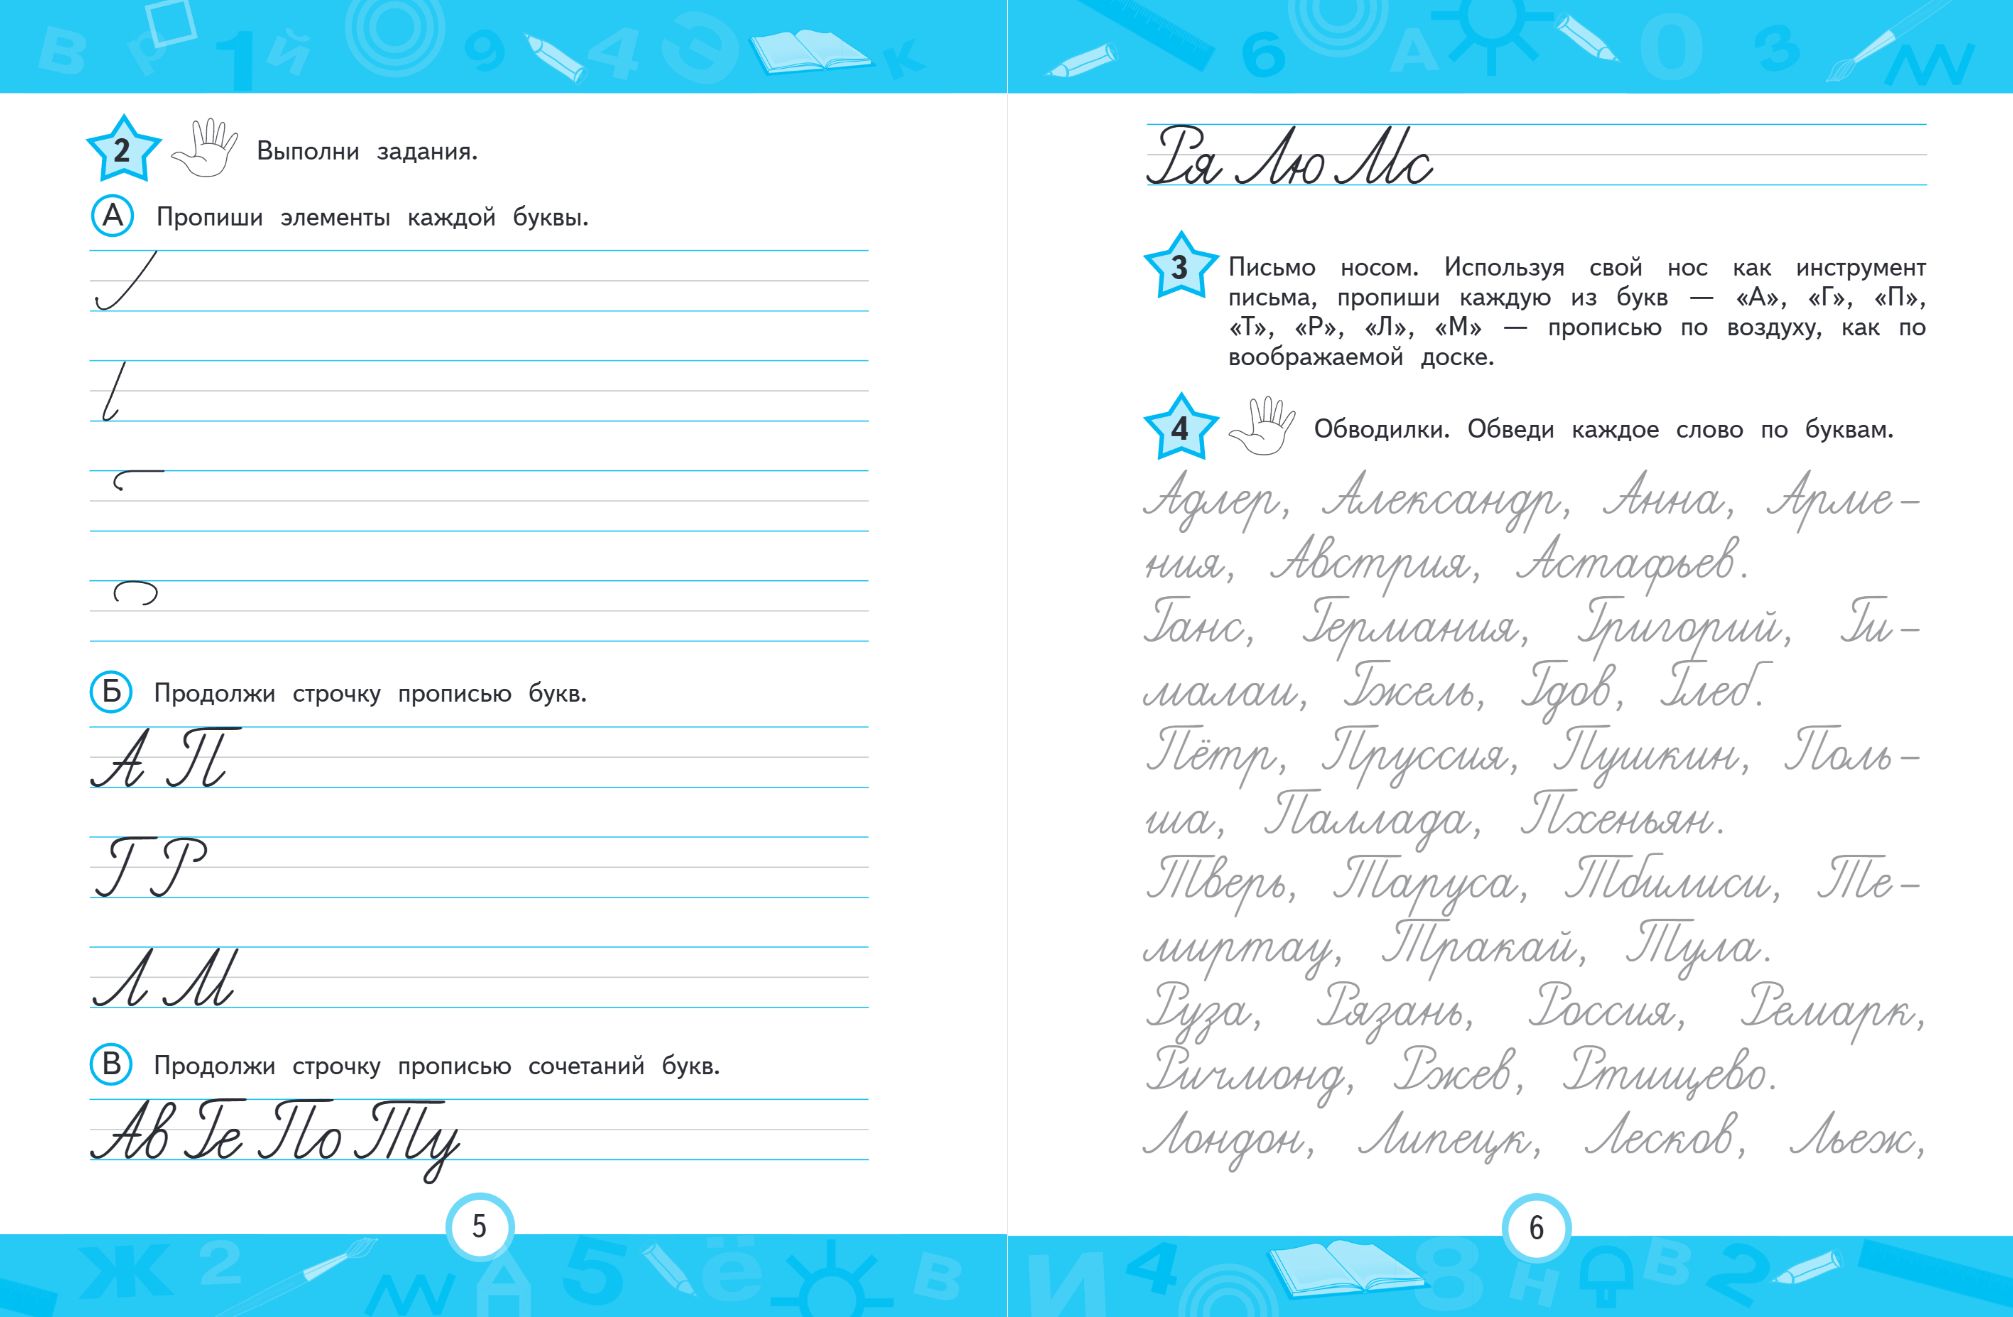 2 Выполни задания.
А Пропиши элементы каждой буквы.
Б Продолжи строчку прописью букв.
А П
Г Р
Л М
В Продолжи строчку прописью сочетаний букв.
Ав Ге По Ту
5
Ря Лю Мс
3 Письмо носом. Используя свой нос как инструмент
письма, пропиши каждую из букв — «А», «Г», «П»,
«Т», «Р», «Л», «М» — прописью по воздуху, как по
воображаемой доске.
4 Обводилки. Обведи каждое слово по буквам.
Адлер, Александр, Анна, Арме-
ния, Австрия, Астафьев.
Ганс, Германия, Григорий, Ги-
малаи, Гжель, Гдов, Глеб.
Пётр, Пруссия, Пушкин, Поль-
ша, Паллада, Пхеньян.
Тверь, Таруса, Тбилиси, Те-
миртау, Тракай, Тула.
Руза, Рязань, Россия, Ремарк,
Ричмонд, Ржев, Ртищево.
Лондон, Липецк, Лесков, Льеж,
6